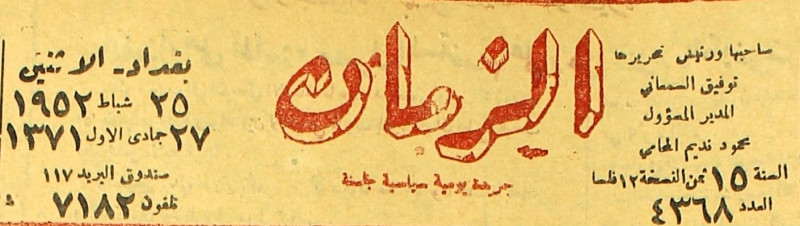 صاحبها ورئيس تحريرها
توفيق السمعاني
المدير المسؤول
محمود نديم المحامي
السنة ١٥ ثمن النسخة ١٢ فلسا
العدد ٤٣٦٨
الزمان
جريدة يومية سياسية جامعة
بغداد - الاثنين
٢٥ شباط ١٩٥٢
٢٧ جمادى الاول ١٣٧١
صندوق البريد ١١٧
تلفون ٧١٨٢